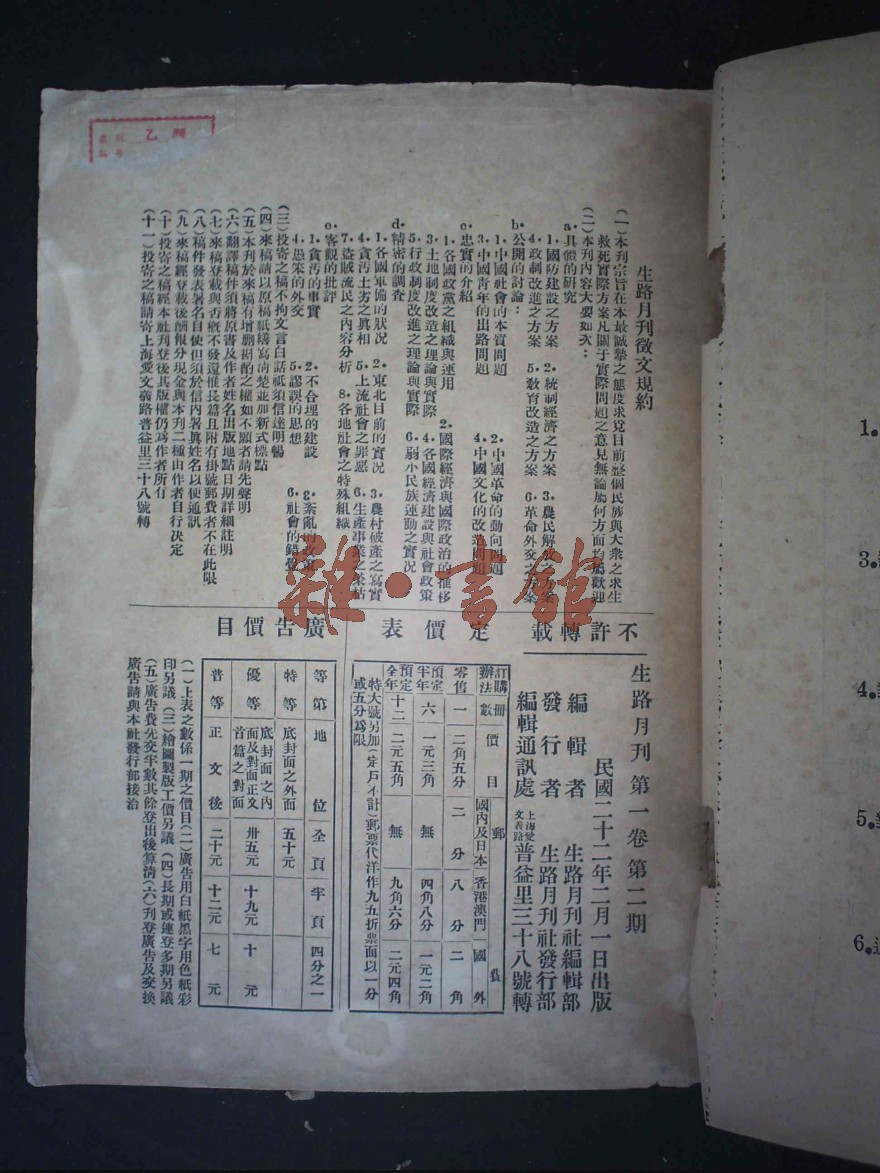 生路月刊徵文規約
（一）本刊宗旨在本最誠摯之態度求覓目前整個民族與大衆之求生
救死實際方案凡關于實際問題之意見無論屬何方面均屬歡迎
（二）本刊內容大要如次：
a.具體的研究
1.國防建設之方案 2.統制經濟之方案 3.農民解放之方案
4.政制改進之方案 5.教育改造之方案 6.革命外交之方案
b.公開的討論：
1.中國社會的本質問題 2.中國革命的動向問題
3.中國青年的出路問題 4.中國文化的改造問題
c.忠實的介紹
1.各國政黨之組織與運用 2.國際經濟與國際政治的推移
3.土地制度改造之理論與實際 4.各國經濟建設與社會政策
5.行政制度改進之理論與實際 6.弱小民族運動之實况
d.精密的調查
1.各國軍備的狀况 2.東北目前的實况 3.農村破產之寫實
4.貪汚土劣之眞相 5.上流社會之罪惡 6.生產事業之
7.盜賊流民之內容分析 8.各地社會之特殊組織
e.客觀的批評
1.貪汚的事實 2.不合理的建設 3.紊亂的政策
4.愚笨的外交 5.謬誤的思想 6.社會的錯覺
（三）投寄之稿不拘文言白話祗須信達明暢
（四）來稿請以原稿紙繕寫淸楚並加新式標點
（五）本刊於來稿有增删斟酌之權如不願者請先聲明
（六）翻譯稿件須將原書及作者姓名出版地點日期詳細註明
（七）來稿登載與否槪不發還惟長篇且附有掛號郵費者不在此限
（八）稿件發表署名自便但須於信內署眞姓名以便通訊
（九）來稿經登載後酬報分現金與本刊二種由作者自行決定
（十）投寄之稿經本社刊登後其版權仍爲作者所有
（十一）投寄之稿請寄上海愛文義路普益里三十八號轉
不許轉載
生路月刊 第一卷 第二期
民國二十二年二月一日出版
編輯者 生路月刊社編輯部
發行者 生路月刊社發行部
編輯通訊處 上海愛文義路普益里三十八號轉
定價表
訂購辦法 冊數 價目 郵費 國內及日本 香港澳門 國外
零售 一 二角五分 二分 八分 二角
預定半年 六 一元三角 無 四角八分 一元二角
預定全年 十二 二元五角 無 九角六分 二元四角
特大號另加（定戶不計）郵票代洋作九五折票面以一分
或五分爲限
廣告價目
等第 地位 全頁 半頁 四分之一
特等 底封面之外面 五十元
優等 底封面之內面及對面正文首篇之對面 卅五元 十九元 十元
普等 正文後 二十元 十二元 七元
（一）上表之數係一期之價目（二）廣告用白紙黑字用色紙彩
印另議（三）繪圖製版工價另議（四）長期或連登多期另議
（五）廣告費先交半數其餘登出後算淸（六）刊登廣告及交換
廣告請與本社發行部接洽
雜·書館
乙
1.
3.
4.
5.
6.